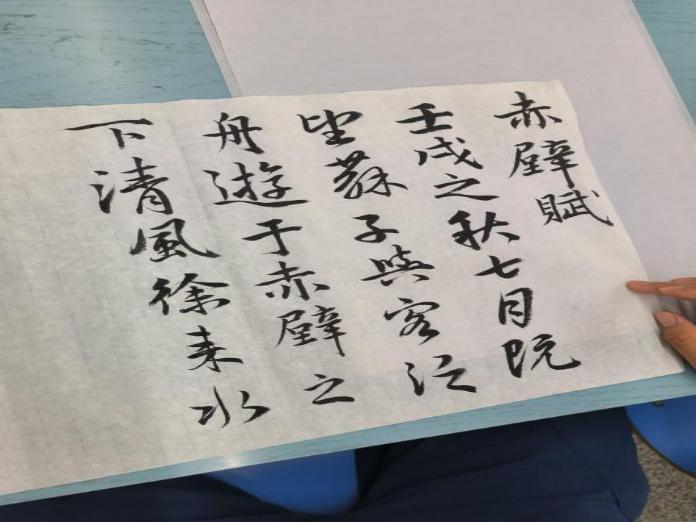 赤壁賦
壬戌之秋七月既
望蘇子與客泛
舟遊于赤壁之
下清風徐来水